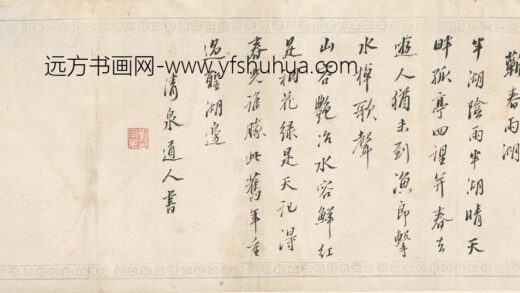 远方书画网-www.yfshuhua.com
蘄春雨湖
半湖陰雨半湖晴天
畔孤亭四望并春去
遊人猶未到漁郎擊
水棹歌聲
山容艷冶水容鮮紅
是桃花綠是天記得
春光誰勝此舊年重
過聖湖邊
清泉道人書